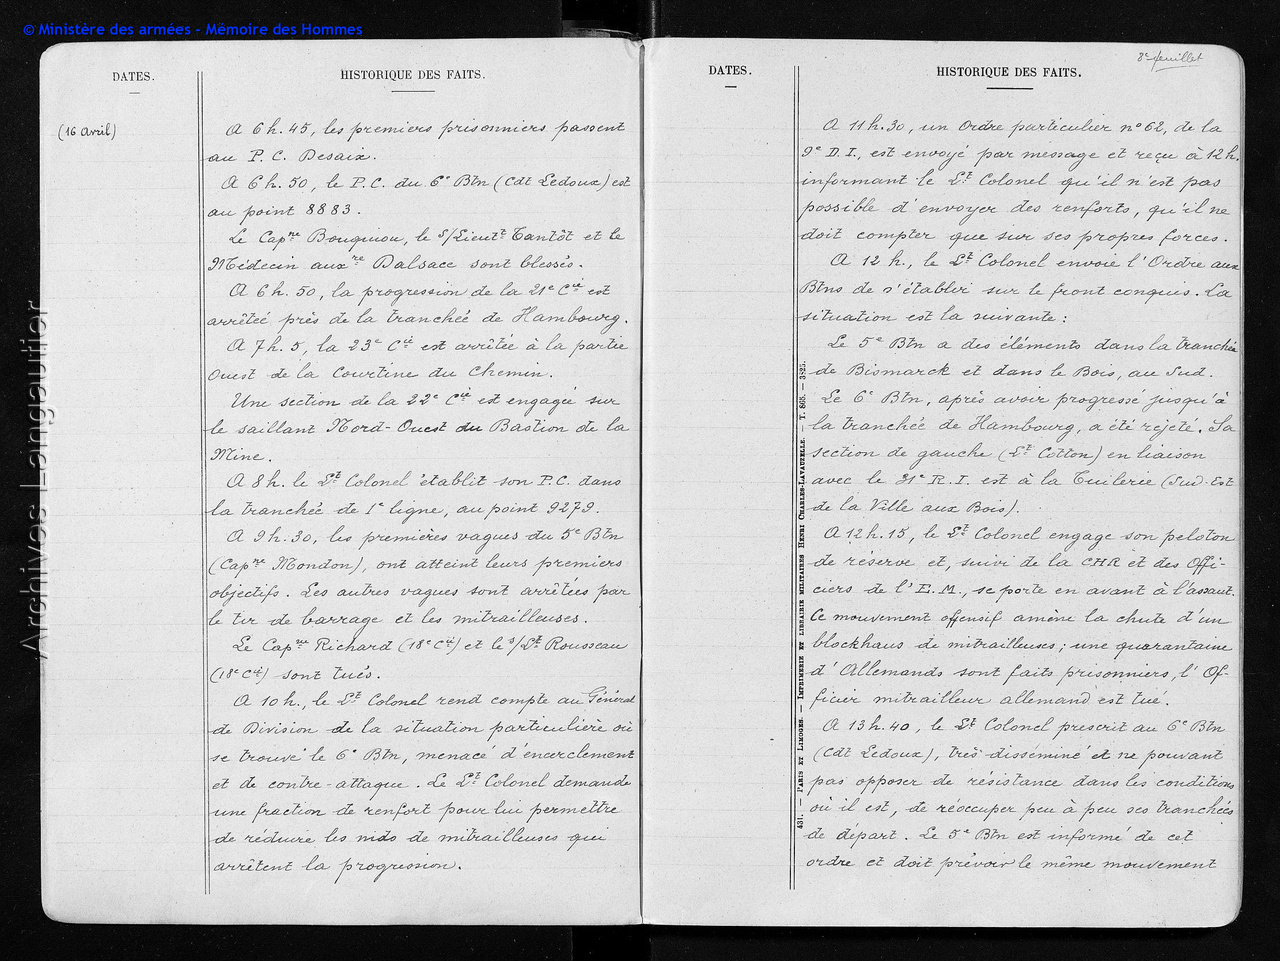 © Ministère des armées - Mémoire des Hommes
DATES.
HISTORIQUE DES FAITS.
(16 Avril)
A 6 h. 45, les premiers prisonniers passent
au P. C. Desaix.
A 6 h. 50, le P.C. du 6e Btn (Cdt Ledoux) est
au point 8883.
Le Capne Bouquiou, le s/Lieutt Tantôt et le
Médecin auxre Dalsace sont blessés.
A 6 h. 50, la progression de la 21e Cie est
arrêtée près de la tranchée de Hambourg.
A 7 h. 5, la 23e Cie est arrêtée à la partie
Ouest de la Courtine du Chemin.
Une section de la 22e Cie est engagée sur
le saillant Nord-Ouest du Bastion de la
Mine.
A 8 h. le Lt Colonel établit son P.C. dans
la tranchée de 1e ligne, au point 9279.
A 9 h. 30, les premières vagues du 5e Btn
(Capne Mondon), ont atteint leurs premiers
objectifs. Les autres vagues sont arrêtées par
le tir de barrage et les mitrailleuses.
Le Capne Richard (18e Cie) et le s/Lt Rousseau
(18e Cie) sont tués.
A 10 h., le Lt Colonel rend compte au Général
de Division de la situation particulière où
se trouve le 6e Btn, menacé d'encerclement
et de contre-attaque. Le Lt Colonel demande
une fraction de renfort pour lui permettre
de réduire les nids de mitrailleuses qui
arrêtent la progression.
Archives Langautier
8e feuillet
DATES.
HISTORIQUE DES FAITS.
A 11 h. 30, un Ordre particulier n° 62, de la
9e D.I., est envoyé par message et reçu à 12 h.
informant le Lt Colonel qu'il n'est pas
possible d'envoyer des renforts, qu'il ne
doit compter que sur ses propres forces.
A 12 h., le Lt Colonel envoie l'Ordre aux
Btns de s'établir sur le front conquis. La
situation est la suivante :
Le 5e Btn a des éléments dans la tranchée
de Bismarck et dans le Bois, au Sud.
Le 6e Btn, après avoir progressé jusqu'à
la tranchée de Hambourg, a été rejeté. Sa
section de gauche (Lt Cotton) en liaison
avec le 31e R.I. est à la Tuilerie (Sud-Est
de la Ville aux Bois).
A 12 h. 15, le Lt Colonel engage son peloton
de réserve et, suivi de la CHR et des Offi-
ciers de l'E.M., se porte en avant à l'assaut.
Ce mouvement offensif amène la chute d'un
blockhaus de mitrailleuses ; une quarantaine
d'Allemands sont faits prisonniers, l'Of-
ficier mitrailleur allemand est tué.
A 13 h. 40, le Lt Colonel prescrit au 6e Btn
(Cdt Ledoux), très disséminé et ne pouvant
pas opposer de résistance dans les conditions
où il est, de réoccuper peu à peu ses tranchées
de départ. Le 5e Btn est informé de cet
ordre et doit prévoir le même mouvement
431. — PARIS ET LIMOGES. — IMPRIMERIE ET LIBRAIRIE MILITAIRES HENRI CHARLES-LAVAUZELLE. — T. 865. — 3825.